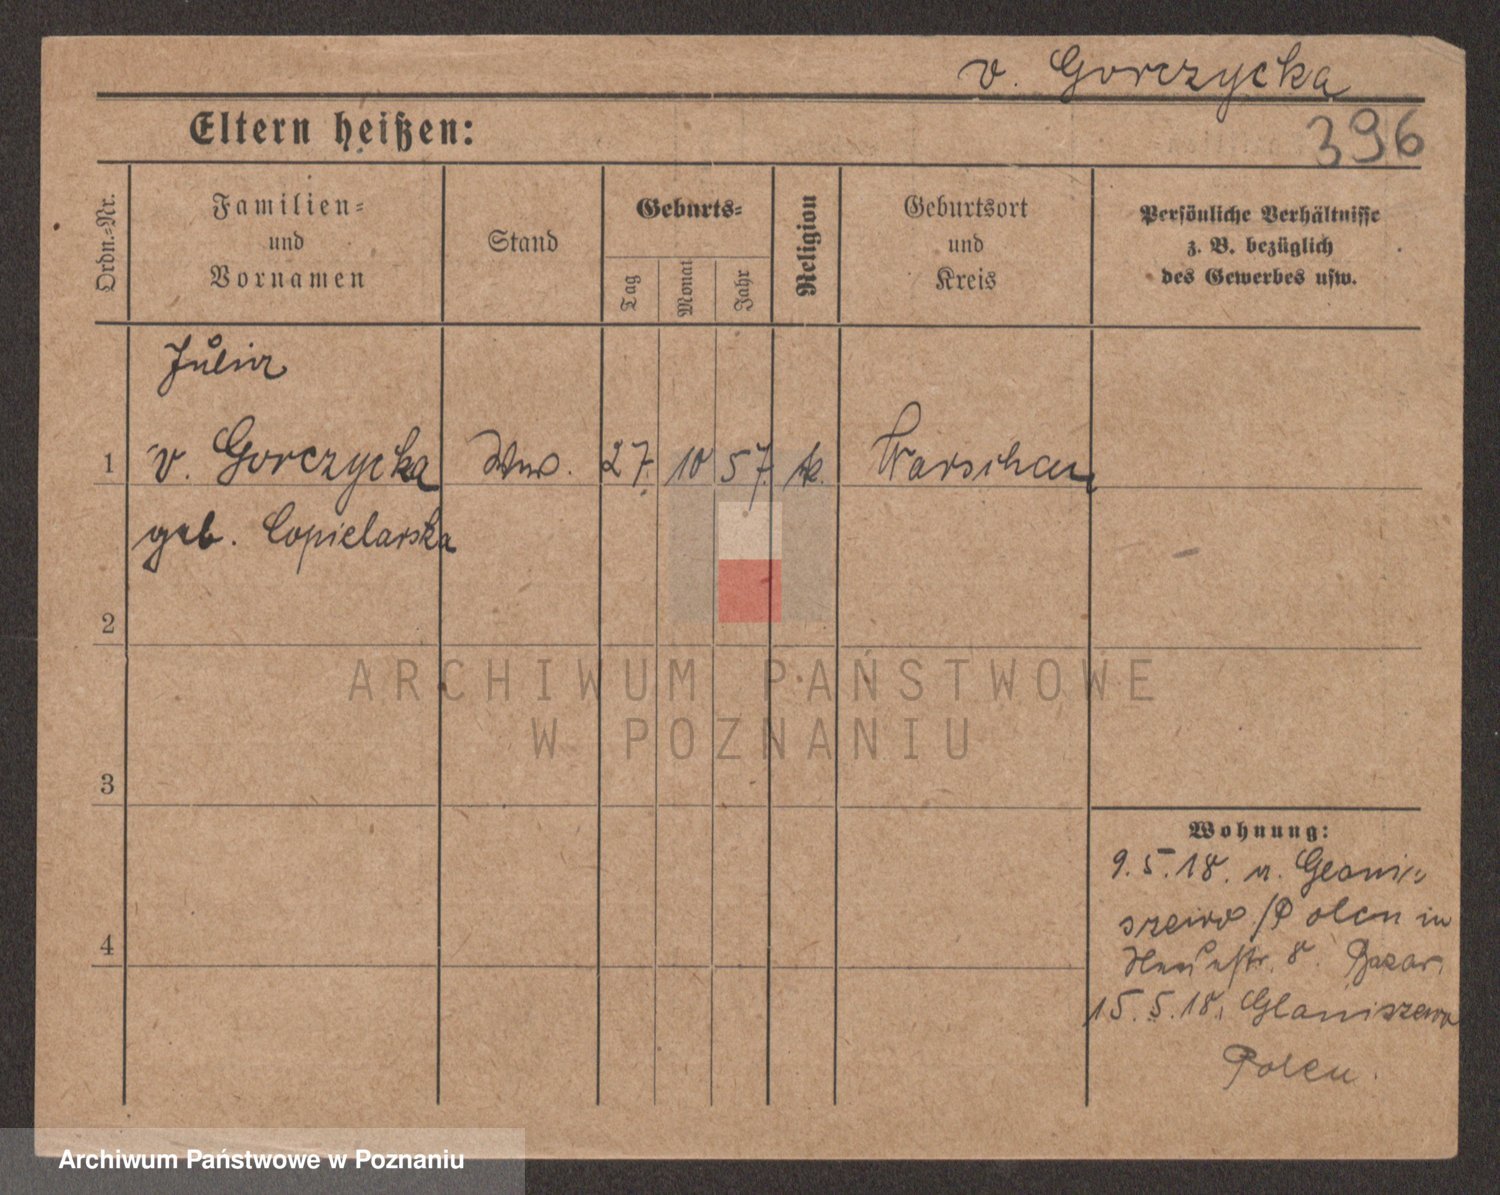 v. Gorczycka
Eltern heißen:
396
Ordn.-Nr.
Familien-
und
Vornamen
Stand
Geburts-
Tag
Monat
Jahr
Religion
Geburtsort
und
Kreis
Persönliche Verhältnisse
z. B. bezüglich
des Gewerbes usw.
Julia
1 v. Gorczycka Wwe. 27. 10 57. k. Warschau
geb. Copielarska
2
ARCHIWUM PAŃSTWOWE
W POZNANIU
3
Wohnung:
9.5.18. a.
/Polen in
4
8. Bazar.
15.5.18. Glaniszewo
Polen.
Archiwum Państwowe w Poznaniu